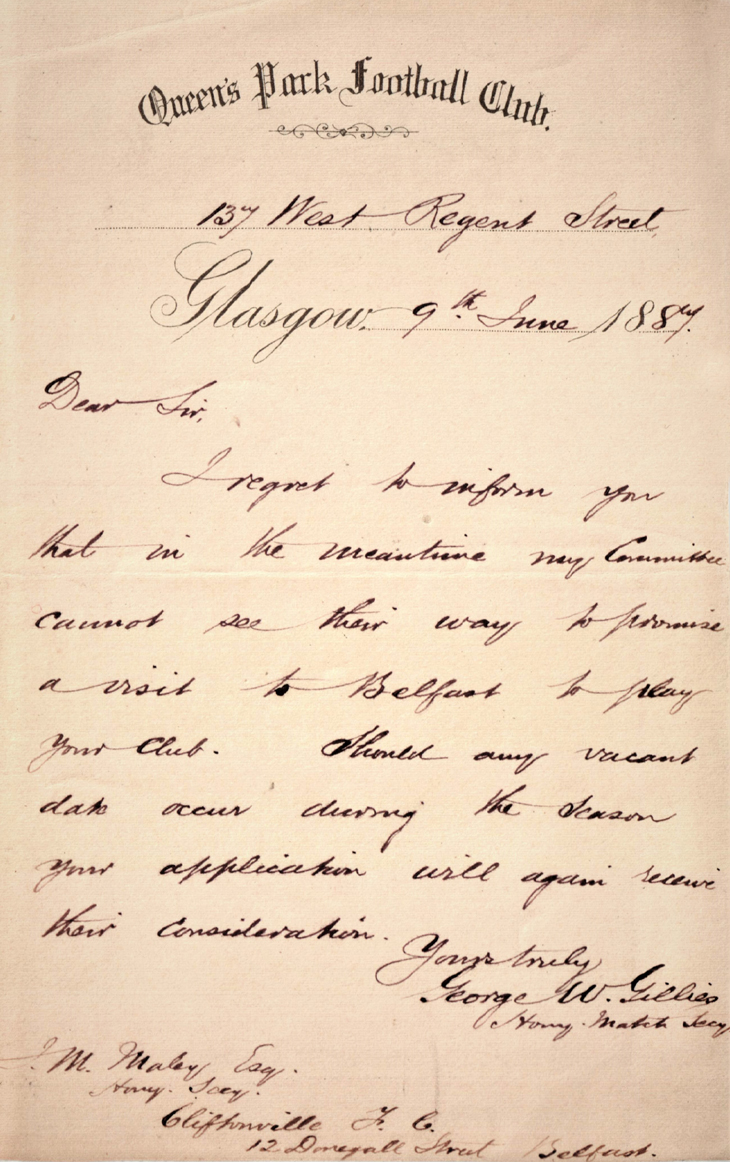 Queen's Park Football Club.
137 West Regent Street,
Glasgow. 9th June 1887.
Dear Sir,
I regret to inform you
that in the meantime my Committee
cannot see their way to promise
a visit to Belfast to play
your Club. Should any vacant
date occur during the Season
your application will again receive
their Consideration.
Yours truly
George W. Gillies
Hony. Match Secy
J. M. Maley Esq.
Hony. Secy.
Cliftonville F. C.
12 Donegall Street Belfast.